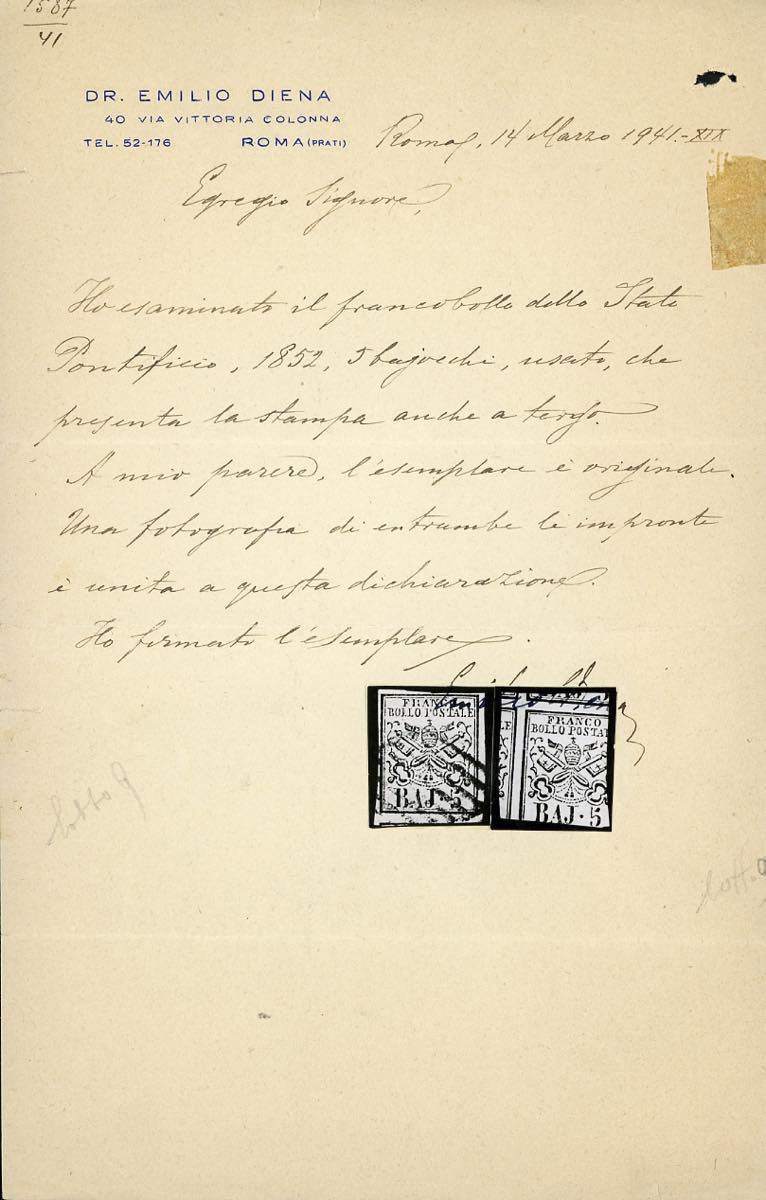 1587
41
DR. EMILIO DIENA
40 VIA VITTORIA COLONNA
TEL. 52-176 ROMA (PRATI)
Roma, 14 Marzo 1941.-XIX
Egregio Signore,
Ho esaminato il francobollo dello Stato
Pontificio, 1852, 5 bajocchi, usato, che
presenta la stampa anche a tergo.
A mio parere, l'esemplare è originale.
Una fotografia di entrambe le impronte
è unita a questa dichiarazione.
Ho firmato l'esemplare.
Emilio Diena
FRANCO
BOLLO POSTALE
BAJ·5
FRANCO
BOLLO POSTA
BAJ·5
lotto 9
lotto 9